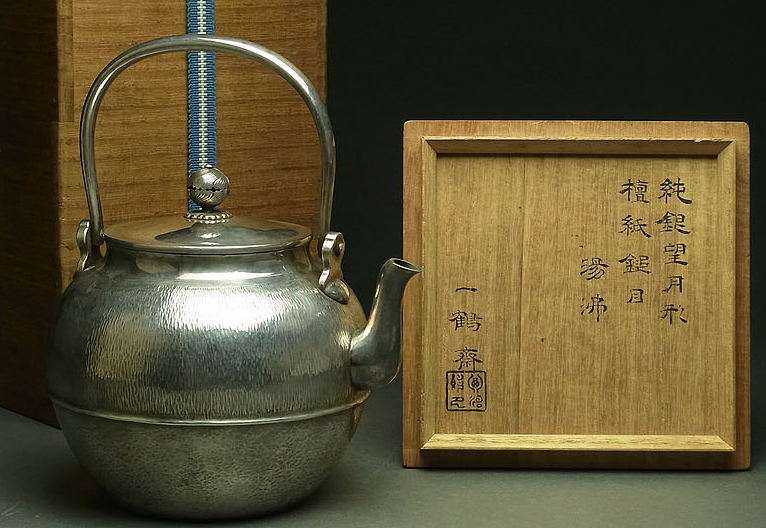 純銀望月形
檀紙鎚目
湯沸
一鶴斎